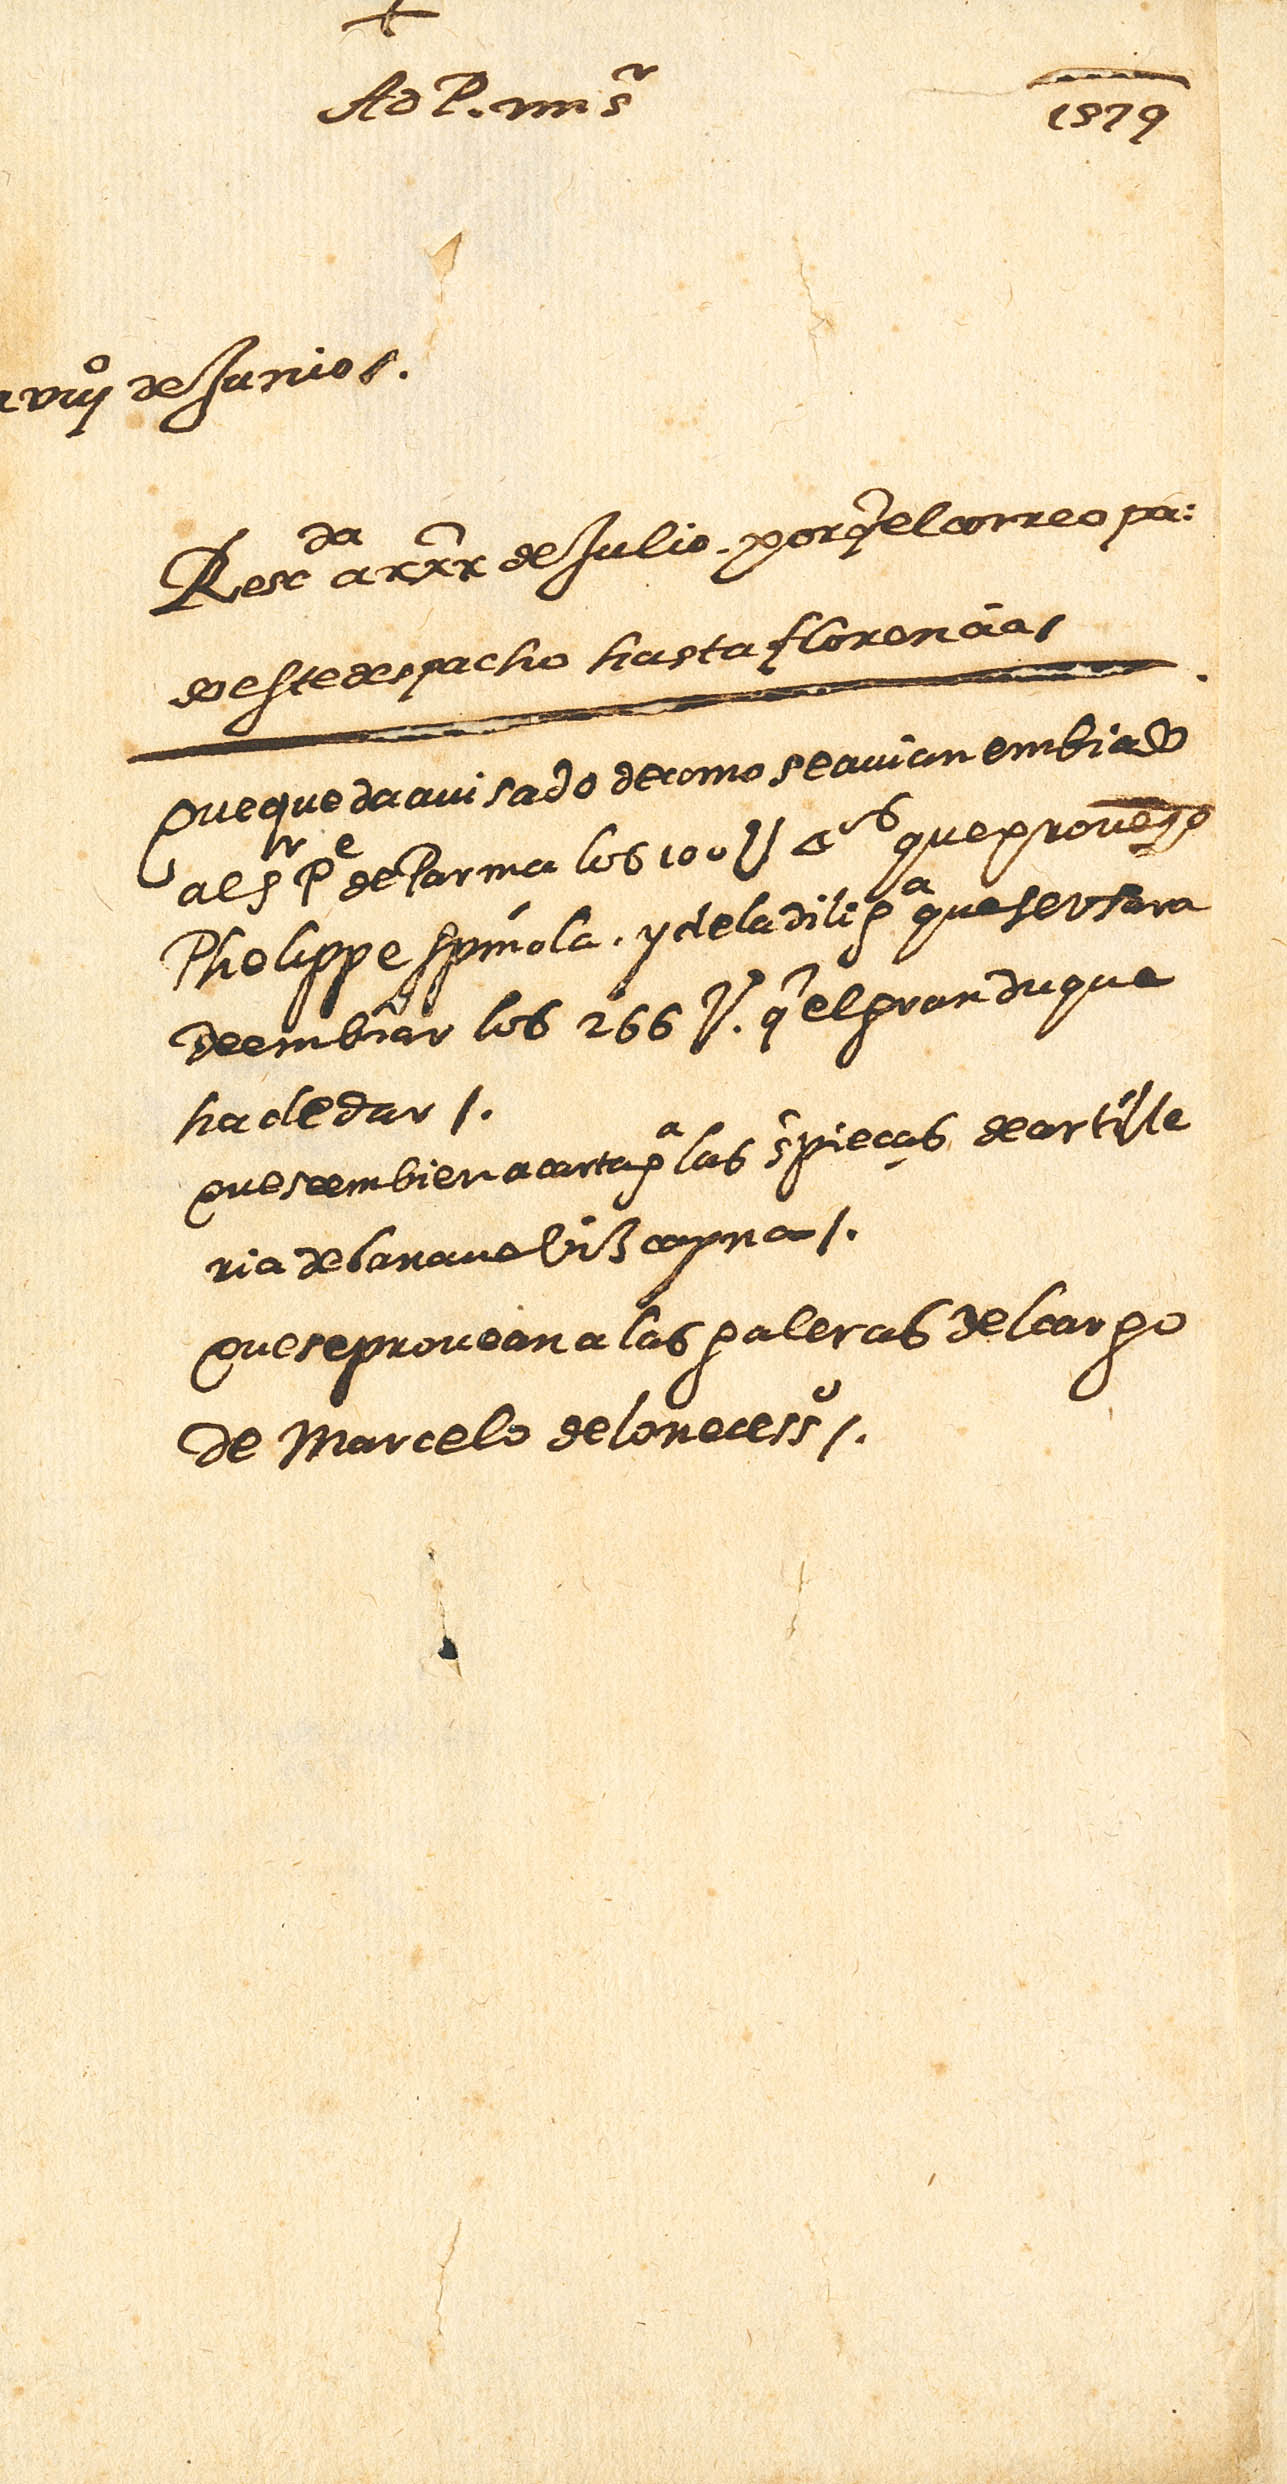 +
A D P. mi s^r
1579
viij^o de Junio /.
Resc^da a xxx de Julio. porq̃ el correo pa:
so este despacho hasta florençia /
Que queda auisado de como se auian embiado
al s^r P^e de Parma los 100 U Δ^os que proueyo
Phelippe spinola. y de la dilig^a que se vsara
de embiar los 266 U. q̃ el gran duque
ha de dar /.
que se embien a cartag^a las 5 pieças de artille
ria de la naue Vizcayna /.
que se prouean a las galeras del cargo
de Marcelo de lo necess^o /.